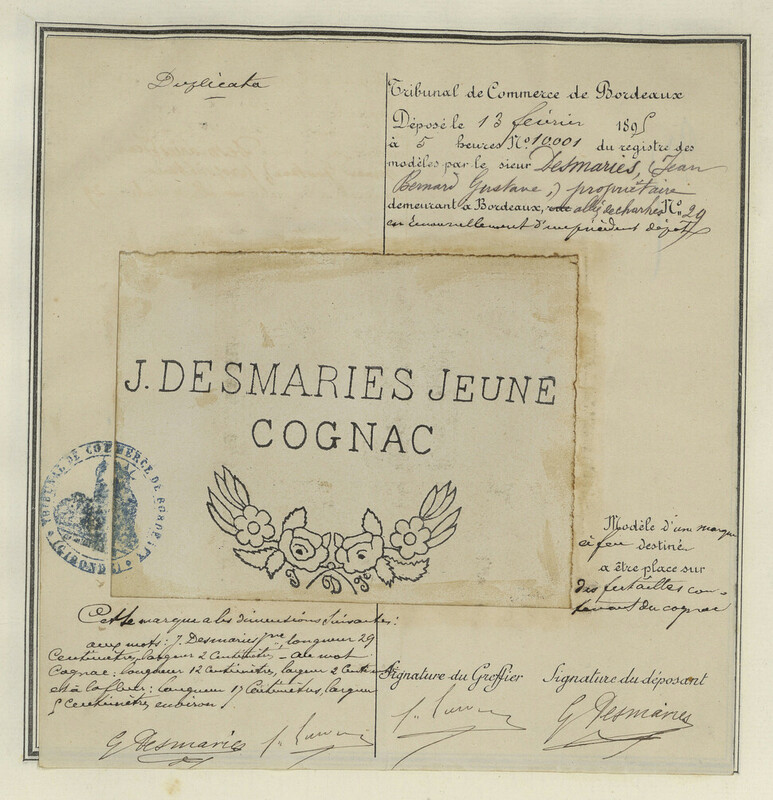 Duplicata
Tribunal de Commerce de Bordeaux
Déposé le 13 février 1895
à 5 heures No. 10001 du registre des
modèles par le sieur Desmaries, (Jean
Bernard Gustave,) propriétaire
demeurant à Bordeaux, rue allées de chartres No. 29
en renouvellement d'un précédent dépôt
J. DESMARIES JEUNE
COGNAC
J D Je
TRIBUNAL DE COMMERCE DE BORDEAUX
(GIRONDE)
Modèle d'une marque
à feu destinée
a être place sur
des futailles con-
tenant du cognac
Cette marque a les dimensions suivantes:
aux mots: J. Desmaries jne, longueur 29
Centimètres, largeur 2 Centimètres - au mot
Cognac: longueur 12 Centimètres, largeur 2 Centim
et à la fleur: longueur 17 Centimètres, largeur
5 Centimètres environ.
Signature du Greffier
Signature du déposant
G Desmaries
G Desmaries